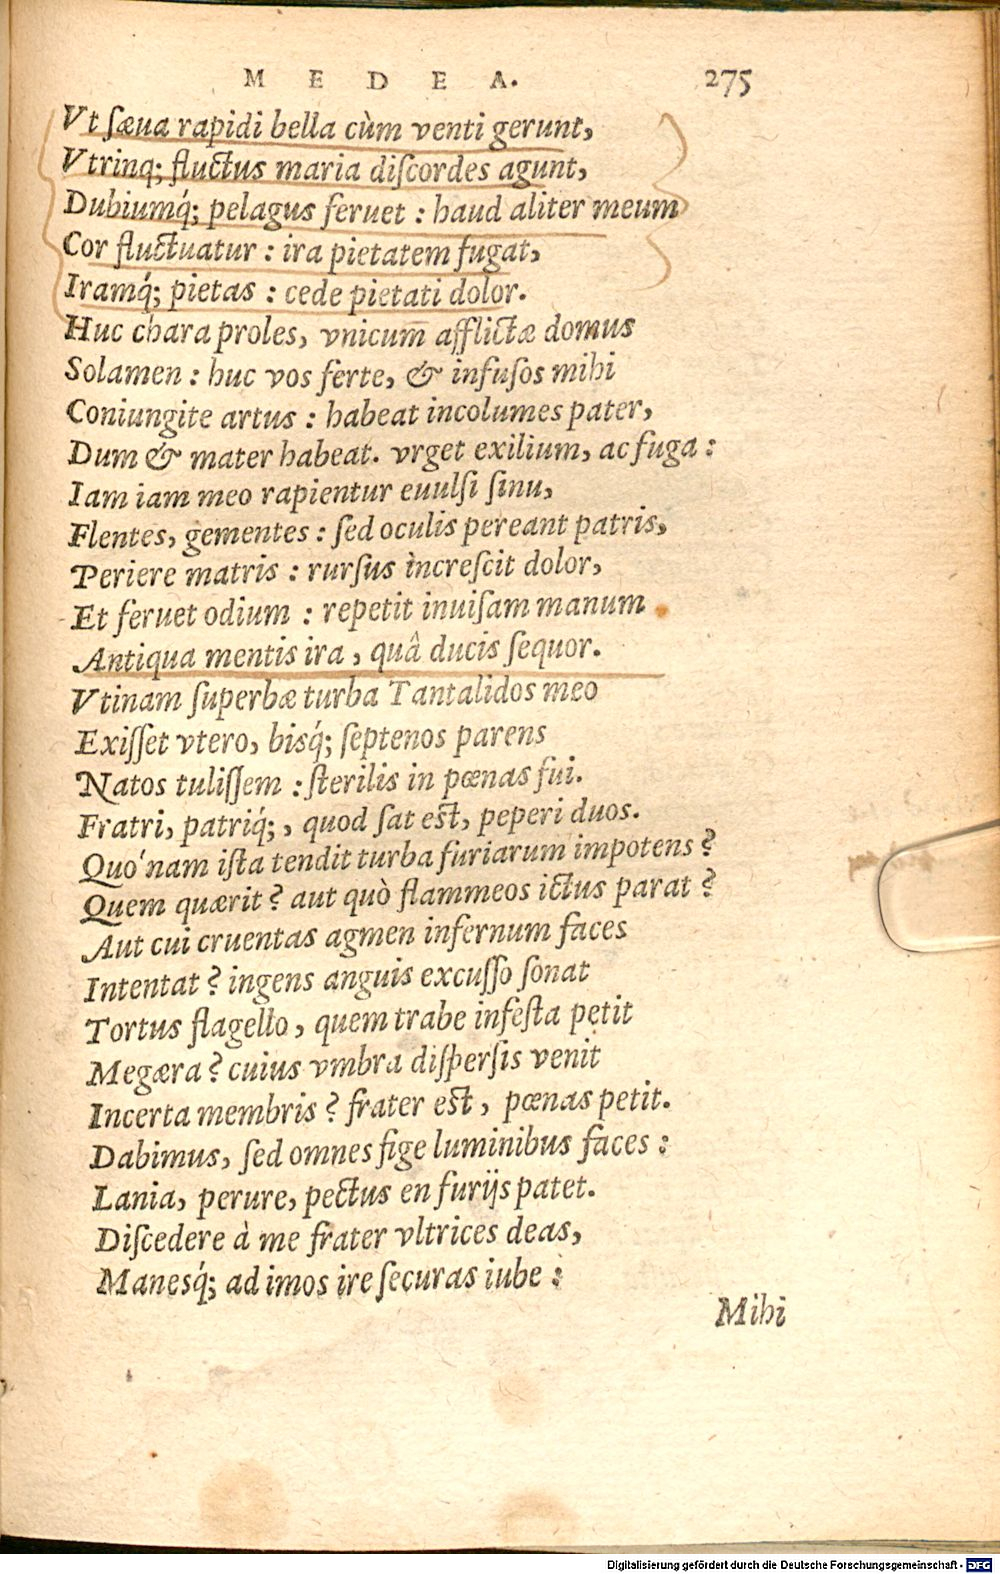 MEDEA. 275
Vt sæua rapidi bella cùm venti gerunt,
Vtrinq; fluctus maria discordes agunt,
Dubiumq́; pelagus feruet : haud aliter meum
Cor fluctuatur : ira pietatem fugat,
Iramq́; pietas : cede pietati dolor.
Huc chara proles, vnicum afflictæ domus
Solamen : huc vos ferte, & infusos mihi
Coniungite artus : habeat incolumes pater,
Dum & mater habeat. vrget exilium, ac fuga :
Iam iam meo rapientur euulsi sinu,
Flentes, gementes : sed oculis pereant patris,
Periere matris : rursus increscit dolor,
Et feruet odium : repetit inuisam manum
Antiqua mentis ira, quâ ducis sequor.
Vtinam superbæ turba Tantalidos meo
Exisset vtero, bisq́; septenos parens
Natos tulissem : sterilis in pœnas fui.
Fratri, patriq́;, quod sat est, peperi duos.
Quo'nam ista tendit turba furiarum impotens ?
Quem quærit ? aut quò flammeos ictus parat ?
Aut cui cruentas agmen infernum faces
Intentat ? ingens anguis excusso sonat
Tortus flagello, quem trabe infesta petit
Megæra ? cuius vmbra dispersis venit
Incerta membris ? frater est, pœnas petit.
Dabimus, sed omnes fige luminibus faces :
Lania, perure, pectus en furijs patet.
Discedere à me frater vltrices deas,
Manesq́; ad imos ire securas iube :
Mihi
Digitalisierung gefördert durch die Deutsche Forschungsgemeinschaft - DFG